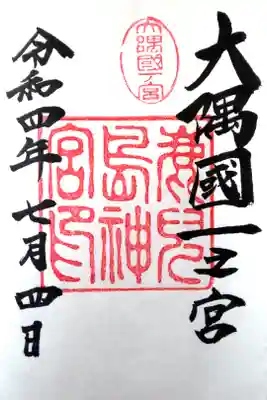 大隅國一ノ宮
大隅國一之宮
鹿兒
島神
宮印
令和四年七月四日